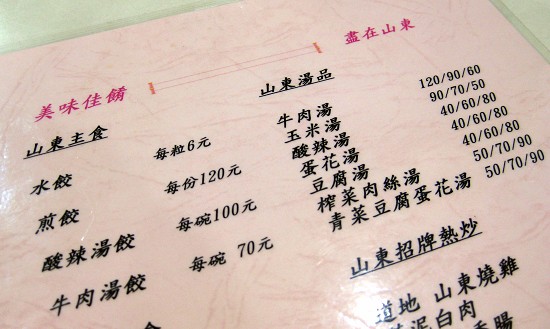 美味佳餚
盡在山東
山東主食
水餃 每粒6元
煎餃 每份120元
酸辣湯餃 每碗100元
牛肉湯餃 每碗 70元
山東湯品
牛肉湯 120/90/60
玉米湯 90/70/50
酸辣湯 40/60/80
蛋花湯 40/60/80
豆腐湯 40/60/80
榨菜肉絲湯 50/70/90
青菜豆腐蛋花湯 50/70/90
山東招牌熱炒
道地 山東燒雞
泥白肉
香腸